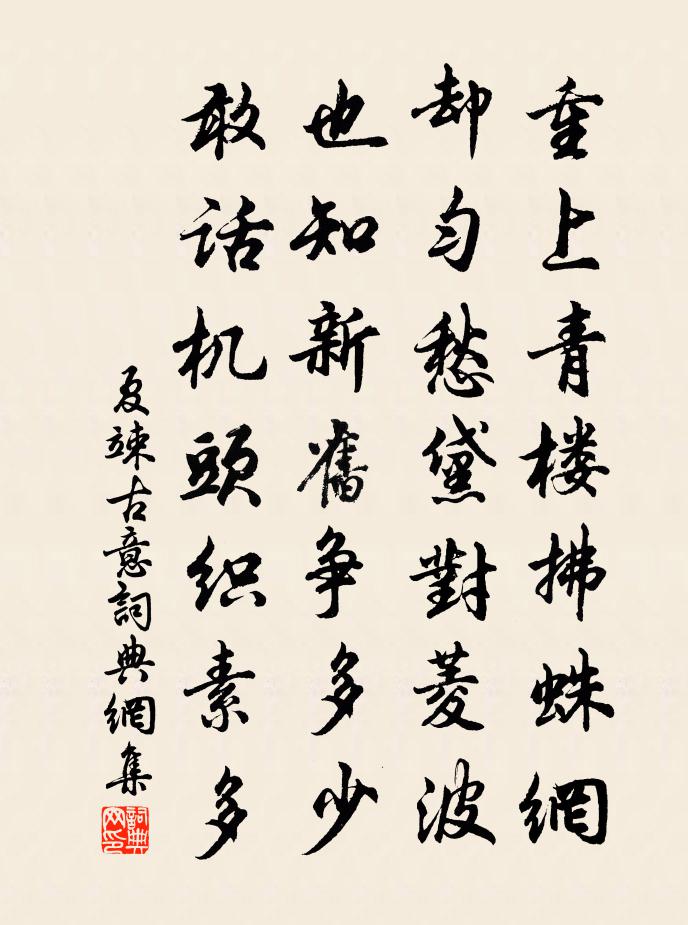 重上青楼拂蛛網
却匀愁黛對菱波
也知新舊争多少
敢话机頭织素多
夏竦古意詞典網集
詞典網印